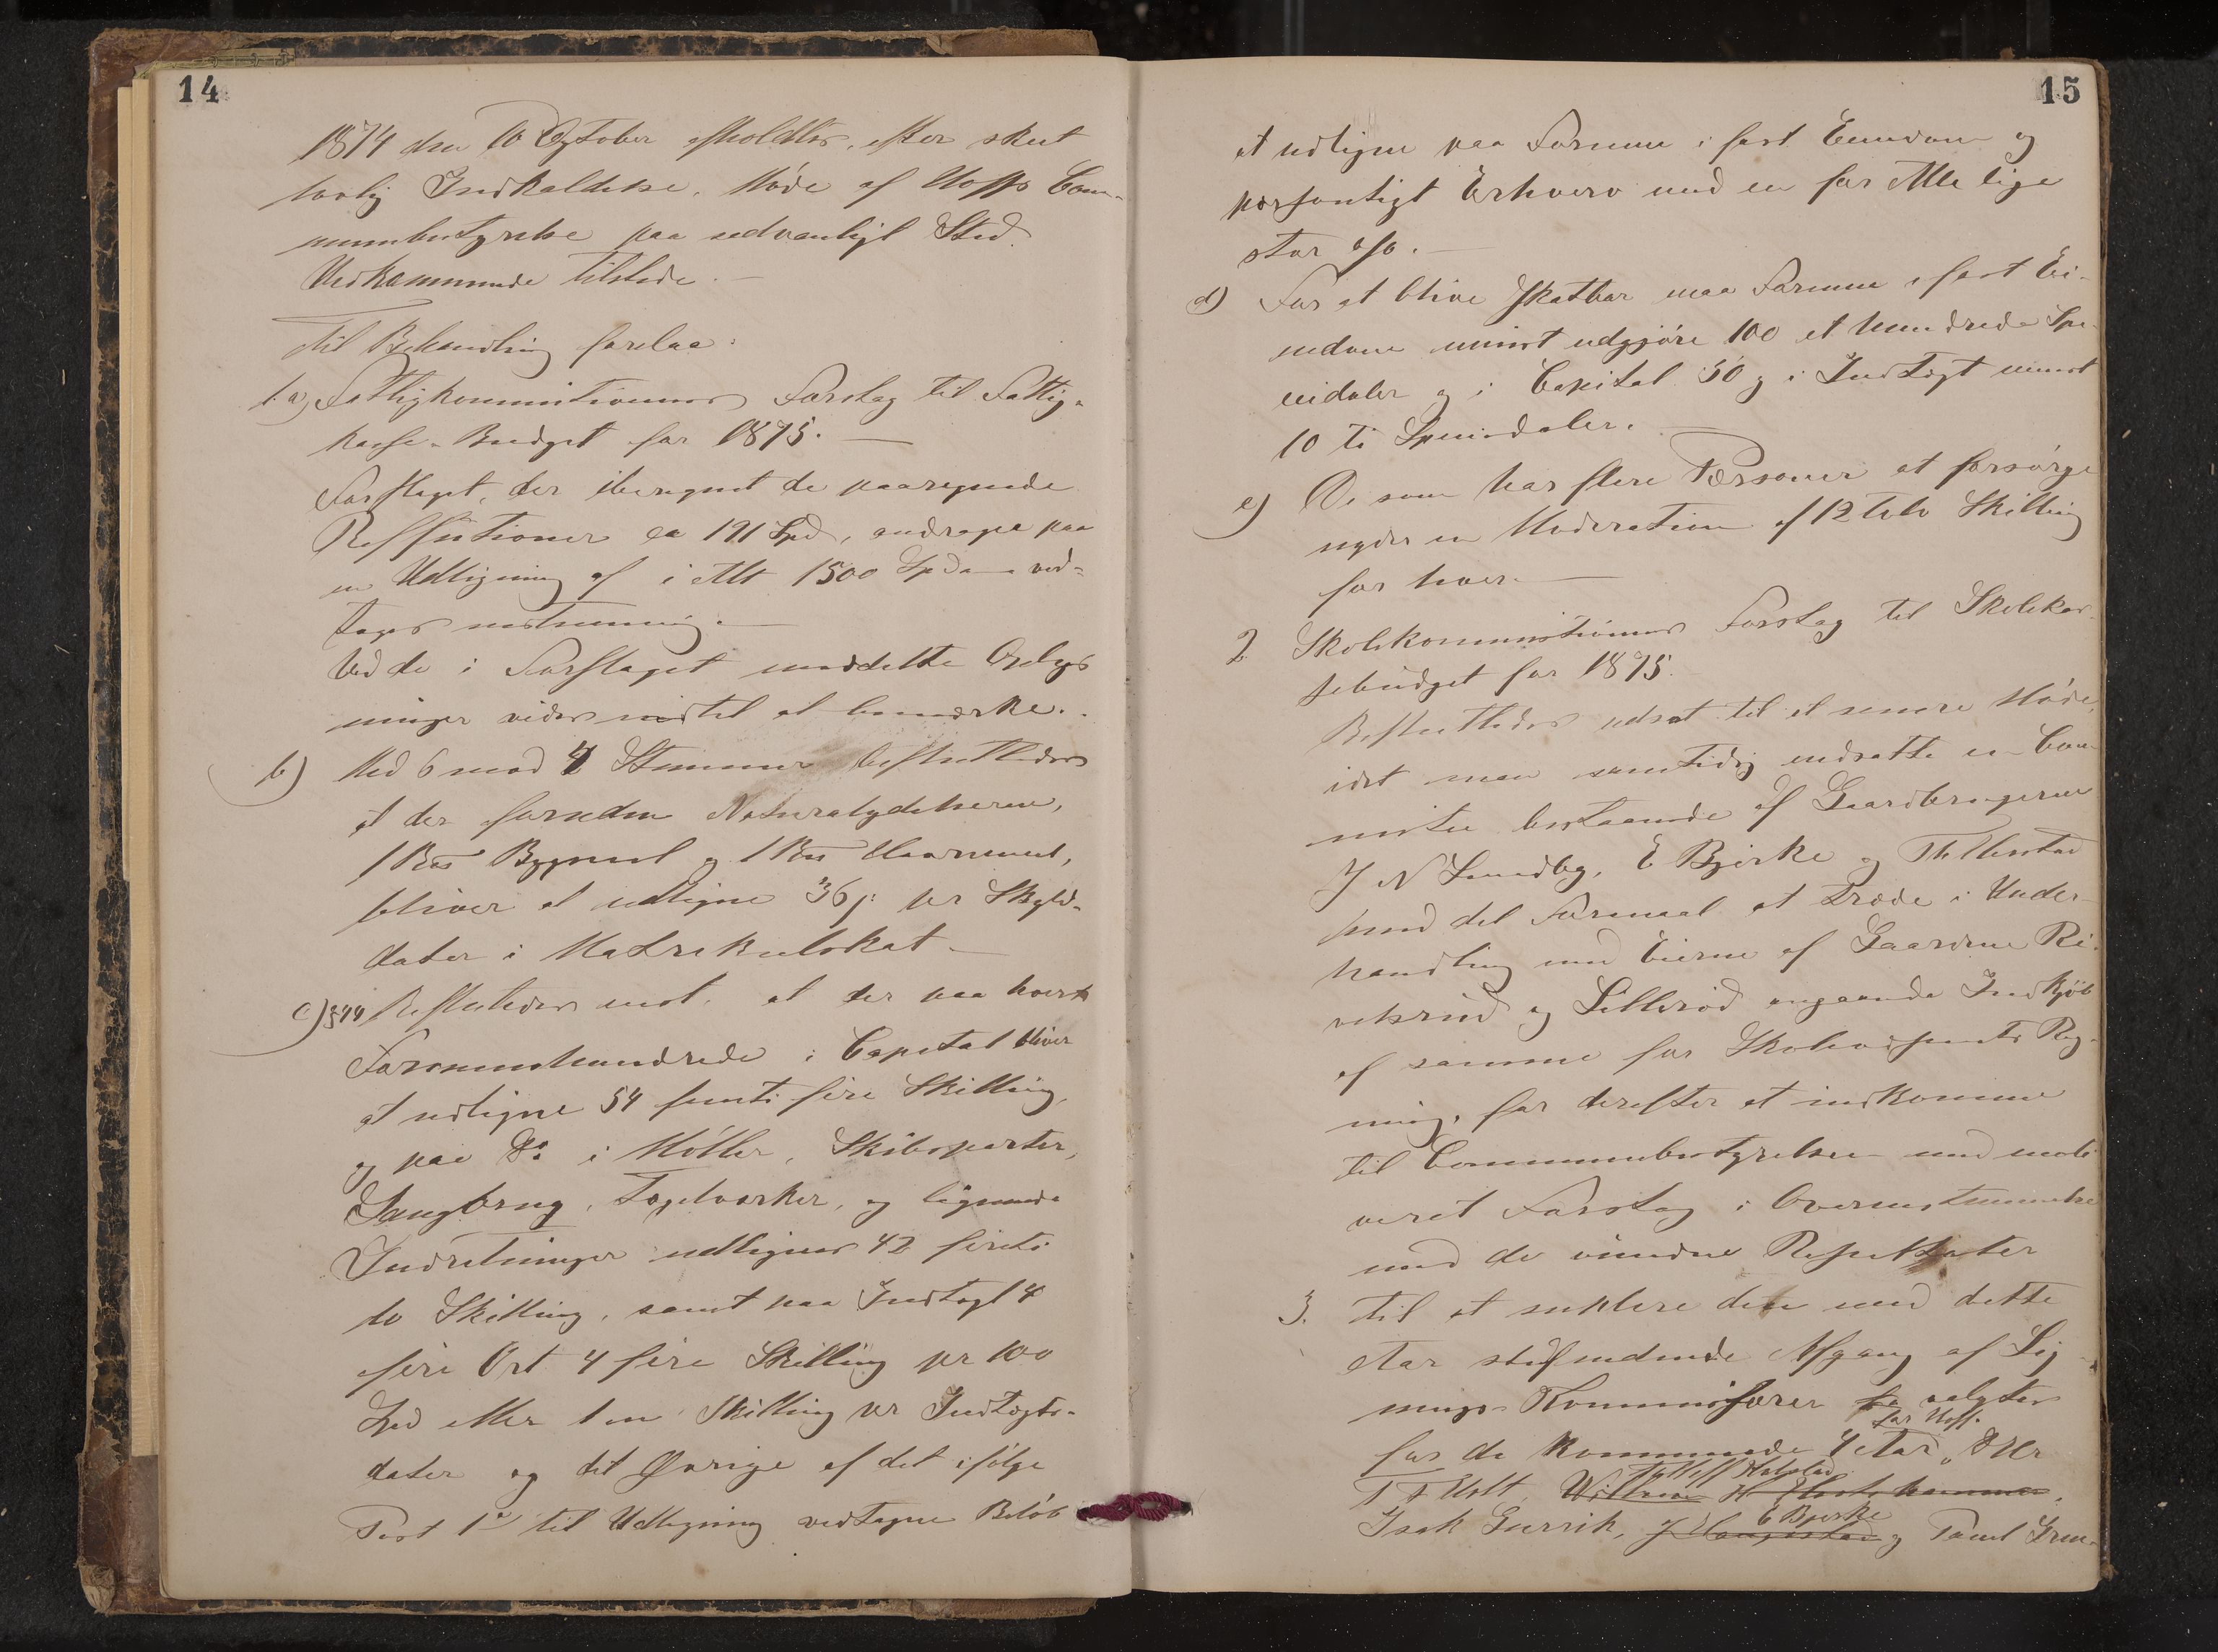 14
1874 den 10 October afholdtes, efter skeet
lovlig Indkaldelse, Møde af Hoffs Com-
munebestyrelse paa sedvanligt Sted.
Vedkommende tilstede.
Til Behandling forelaa:
1. a) Fattigkommissionens Forslag til Fattig-
kasse-Budget for 1875.
Forslaget, der iberegnet de paaregnede
191 Spd, andrager paa
en Udligning af i Alt 1500 Spd ved-
toges enstemmig.
Ved de i Forslaget meddelte Oplys
ninger vides intet at bemærke.
b) Med 6 mod 4 Stemmer besluttedes
at der foruden Naturalydelserne,
1 Bygmel og 1 Havremel,
bliver at udligne 36 s: pr Skyld-
daler i Matrikulskat
c) Besluttedes enst. at der paa hvert
Formueshundrede i Capital bliver
at udligne 54 femti fire Skilling,
og paa Do i Møller, Skibsparter,
Saugbrug, Teglværker, og lignende
Indretninger udlignes 42 firti
to Skilling, samt paa Indtægt 4
fire Ort 4 fire Skilling pr 100
Spd eller 1 en Skilling pr Indtægts-
daler og det Øvrige af det ifølge
Post 1a til Udligning vedtagne Beløb
15
at udligne paa Formue i fast Eiendom og
personligt Erhverv med en for Alle lige
stor %.
d) For at blive skatbar maa Formue i fast Ei-
endom mindst udgjøre 100 et hundrede Spe-
cidaler og i Capital 50 og i Indtægt mindst
10 ti Speciedaler.
e) De som har flere Personer at forsørge
nyder en Moderation af 12 tolv Skilling
for hver.
2 Skolekommissionens Forslag til Skolekas-
sebudget for 1875.
Besluttedes udsat til et senere Møde,
idet man samtidig nedsatte en Com-
mitee bestaaende af Gaardbrugerne
J N Lundby, E Bjerke og
med det Formaal at træde i Under-
handling med Eierne af Gaardene
og Lillerød angaaende Indkjøb
af samme for Skolevæsenets Reg-
ning, for derefter at indkomme
til Communebestyrelsen med moti
veret Forslag i Overensstemmelse
med de vundne Resultater
3. Til at supplere den med dette
Aar stedfindende Afgang af Lig
nings-Kommissærer valgtes
for de kommende Aar, for Hoff.
T F Holt,
Isak Gurrik, E Bjerke og